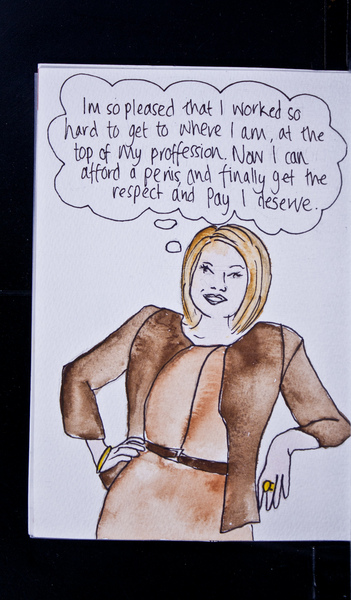 Im so pleased that I worked so
hard to get to where I am, at the
top of my proffession. Now I can
afford a penis, and finally get the
respect and Pay I deserve.